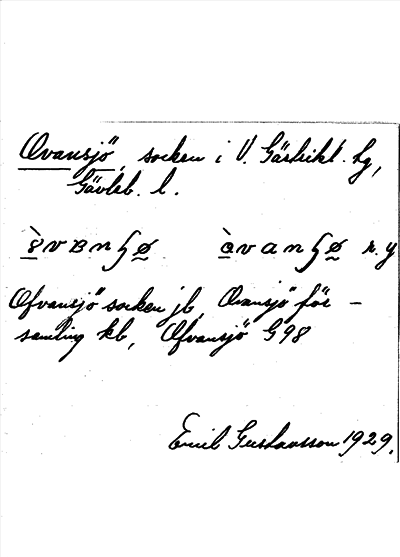 Ovansjö, socken i V. Gästrikl. hg,
Gävleb. l.
òvanʃø òvanʃø n. y
Ofvansjö socken jb, Ovansjö för-
samling kb, Ofvansjö G98
Emil Gustavsson 1929.